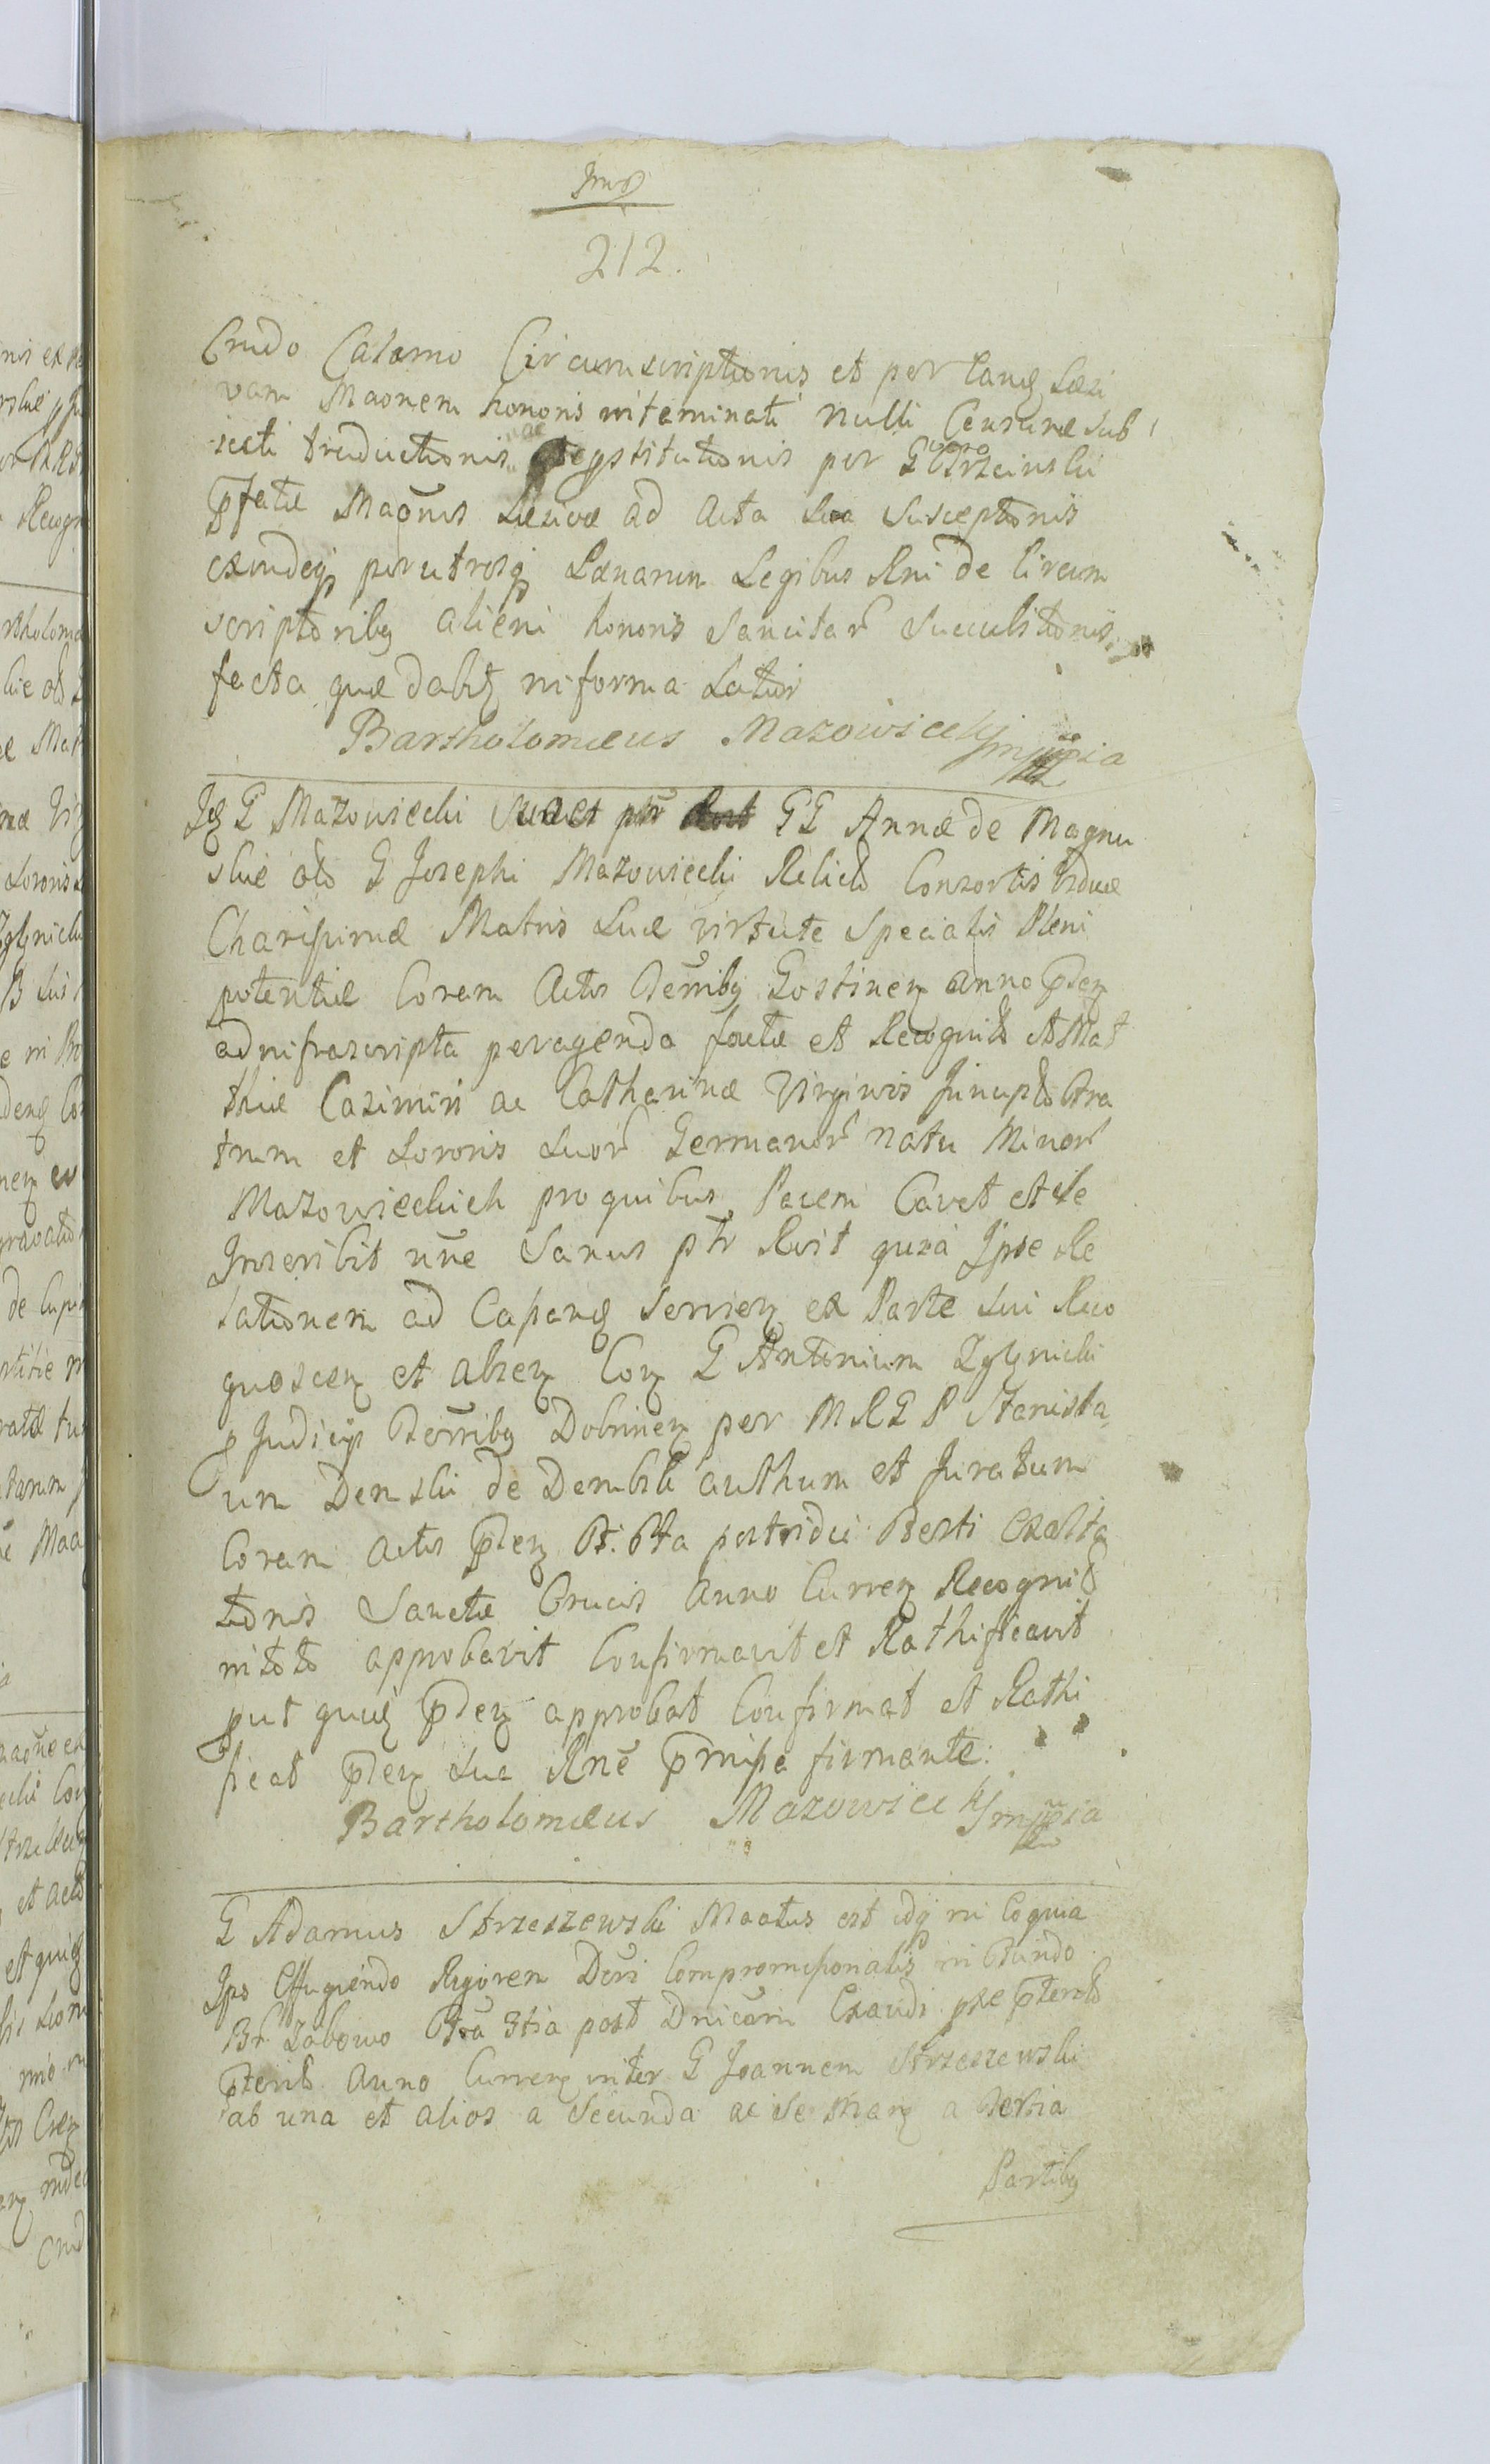 212.
Crudo Calamo Circumscriptionis et per tanq Læsi
vam Maonem honoris intaminati nulli Censuræ sub
iecti traductionis ac per G
pfatæ Maonis Læsivæ ad Acta sua Susceptionis
exindeq per utrosq Lænarum Legibus Rni de Circum
scriptoribq alieni honoris Sancitar Succubitionis
facta quæ dabit in forma Latior
Bartholomæus Mazowiecki mppia
Iq G Mazowiecki GG Annæ de Magnu
skie olo G Josephi Mazowiecki Relictæ Consortis Viduæ
Charissimæ Matris suæ virtute Specialis Pleni
potentiæ Coram Actis Terribq Gostinen anno pden
ad infrascripta peragenda factæ et Recognitæ et Mat
thiæ Casimiri ac Catharinæ Virginis Fra
trum et Sororis suor Germanor natu Minor
Mazowieckich pro quibus Pacem Cavet et se
Inscribit une Sanus ptr Rvit quia Ipse Re
lationem ad Capanq Servien ex Parte sui Reco
gnoscen et absen Con G Antonium Zglinicki
p Judicys Terribq Dobrinen per M R G P Stanisla
um Demski de Dembsk authum et Juratum
Coram Actis pden postridie Festi Exalta
tionis Sanctæ Crucis Anno Curren Recognit
in toto approbavit Confirmavit et Rathificavit
put quidq pden approbat Confirmat et Rathi
ficat pden sua Rne pmissa firmante.
Bartholomæus Mazowiecki mppia
G Adamus Strzeszewski Maatus est idq in Coquia
Ips Effugiendo Rigorem Dcri Compromissorialis in Fundo
Br Zabowo Fra 3tia post Dnicam Exaudi pxe pterito
pterit Anno Curren inter G Joannem Strzeszewski
ab una et alios a Secunda ac se Maen a Tertia
Partibq